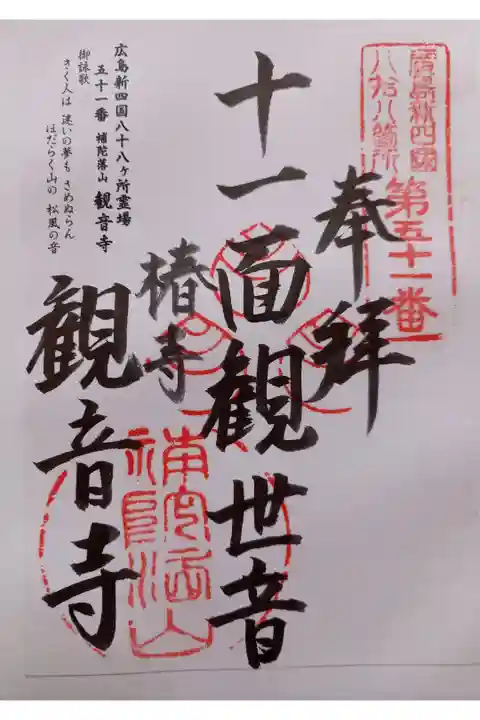 廣島新四國
八拾八箇所
第五十一番
奉拝
十一面観世音
椿寺
観音寺
補陀洛山
広島新四国八十八ヶ所霊場
五十一番 補陀落山 観音寺
御詠歌
きく人は 迷いの夢も さめぬらん
ほだらく山の 松風の音